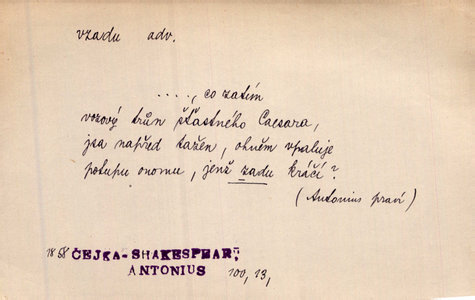 vzadu adv.
...., co zatím
vozový trůn šťastného Caesara,
jsa napřed tažen, ohněm vpaluje
potupu onomu, jenž zadu kráčí?
(Antonius praví)
1858 ČEJKA-SHAKESPEAR,
ANTONIUS 100, 13,